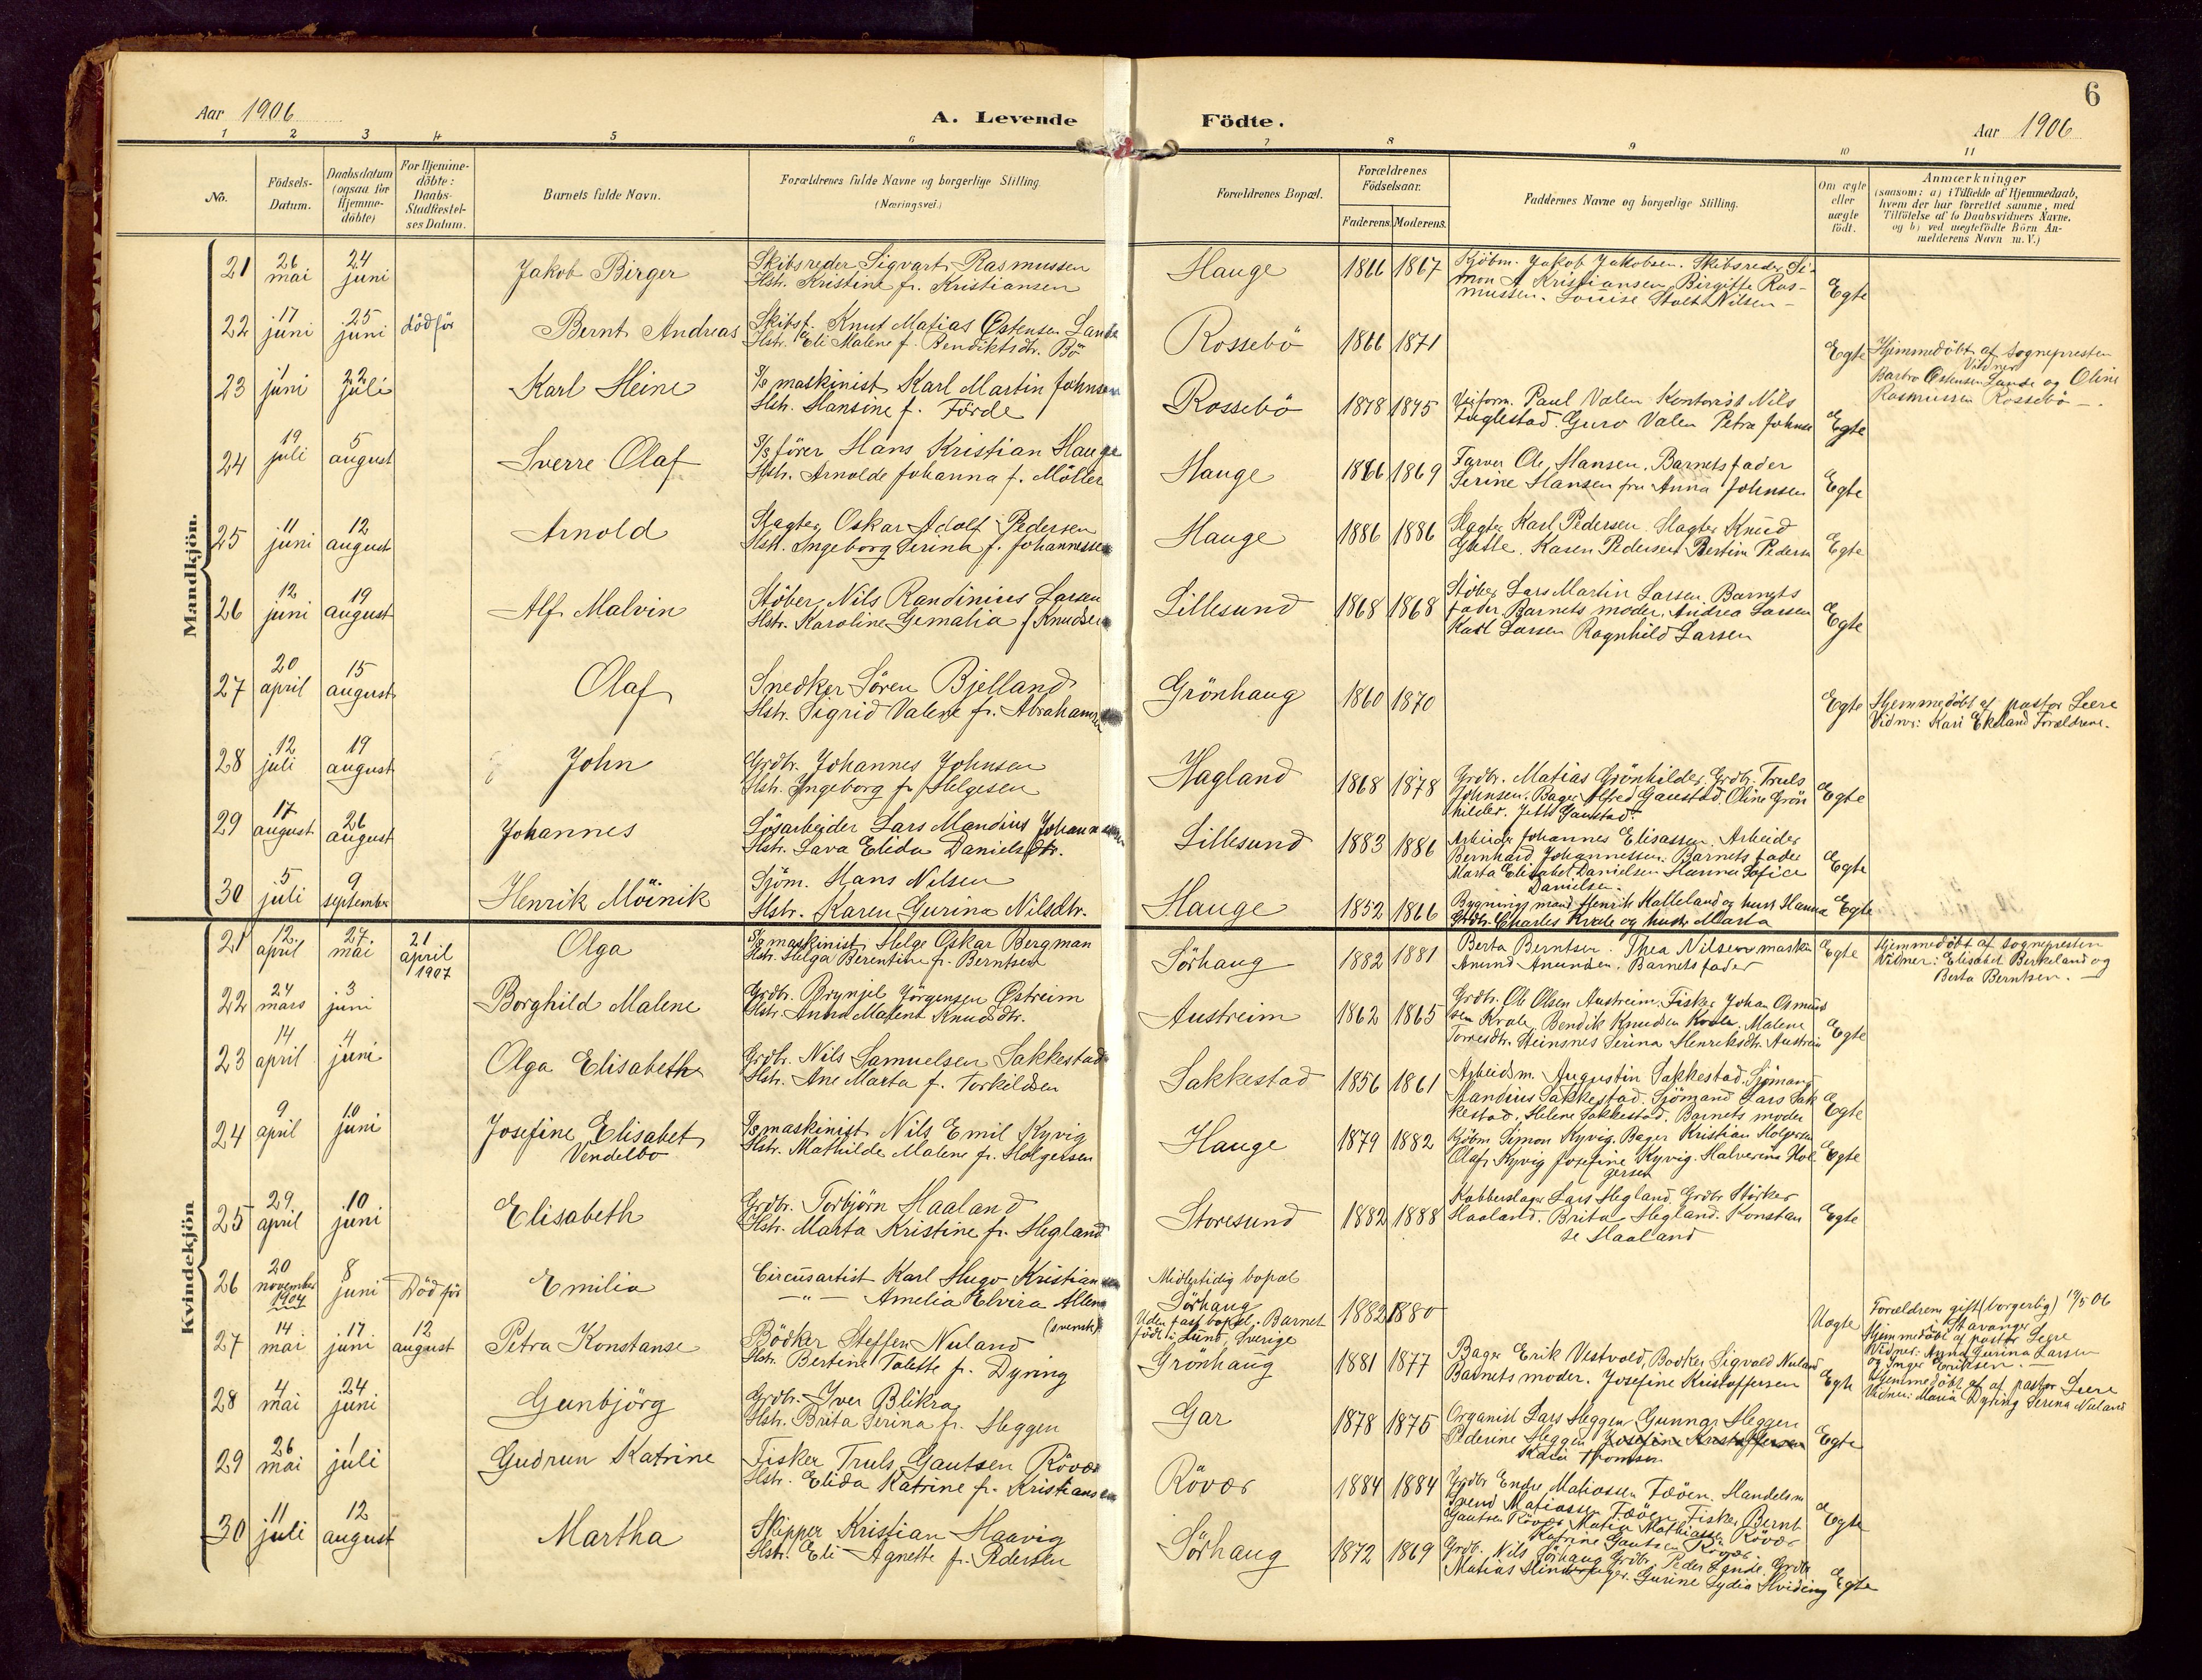 6
Aar 1906
A. Levende Födte.
Aar 1906
1 2 3 4 5 6 7 8 9 10 11
No.
Födsels-
Datum.
Daabsdatum
(ogsaa for
Hjemme-
döbte)
For Hjemme-
döbte:
Daabs-
Stadfæstel-
ses Datum.
Barnets fulde Navn.
Forældrenes fulde Navne og borgerlige Stilling
(Næringsvei.)
Forældrenes Bopæl.
Forældrenes
Födselsaar.
Faderens. Moderens.
Faddernes Navne og borgerlige Stilling.
Om ægte
eller
uægte
födt.
Anmærkninger
(saasom: a) i Tilfælde af Hjemmedaab,
hvem der har forrettet samme, med
Tilföielse af to Daabsvidners Navne,
og b) ved uægtefödte Börn An-
melderens Navn m. V.)
Mandkjön.
21 26 mai 24 juni Jakob Birger
Skibsreder Sigvart Rasmussen
Hstr. Kristine f. Kristiansen
Hauge 1866 1867
Kjöbm. Jakob Jakobsen. Skibsreder Si-
mon A Kristiansen, Birgitte Ras-
mussen. Louise Stolt Nilsen -
Egte
22 17 juni 25 juni död för Bernt Andreas
Skibsf. Knut Matias Östensen Lande
Hstr. Eli Malene f. Bendiktsdtr. Bö
Rossebö 1866 1871
Egte
Hjemmedöbt af sognepresten
Vidner
Barbro Östensen Lande og Oline
Rasmussen Rossebö -.
23 1 juni 22 juli Karl Heine
S/s maskinist Karl Martin Johnsen
Hstr. Hansine f. Förde
Rossebö 1878 1875
Veiform. Paul Valen Kontorist Nils
Fuglestad. Guro Valen Petra Johnse
Egte
24 19 juli 5 august Sverre Olaf
S/s förer Hans Kristian Hauge
Hstr. Arnolde Johanna f. Möller
Hauge 1866 1869
Farver Ole Hansen. Barnets fader
Serine Hansen fru Anna Johnsen
Egte
25 11 juni 12 august Arnold
Slagter Oskar Adolf Pedersen
Hstr. Ingeborg Serina f. Johannessen
Hauge 1886 1886
Slagter Karl Pedersen. Slagter Knud
Gjetle. Karen Pedersen Bertine Pedersn
Egte
26 12 juni 19 august Alf Malvin
Stöber Nils Randinius Larsen
Hstr. Karoline Gemalia f Knudsen
Lillesund 1868 1868
Stöber Lars Martin Larsen, Barnets
fader, Barnets moder, Andrea Larsen
Karl Larsen Ragnhild Larsen
Egte
27 20 april 15 august Olaf
Snedker Sören Bjelland
Hstr. Sigrid Valene f. Abrahamsen
Grönhaug 1860 1870
Egte
Hjemmedöbt af pastor Leere
Vidner: Kari Ekeland Forældrene.
28 12 juli 19 august John
Grdbr. Johannes Johnsen
Hstr. Ingeborg f. Helgesen
Hagland 1868 1878
Grdbr. Matias Grönhilder. Grdbr. Truls
Johnsen. Bager Alfred Gaustad. Oline Grön
hilder. Jette Gaustad.
Egte
29 17 august 26 august Johannes
Lösarbeider Lars Mandius Johannessen
Hstr. Lava Elida Danielsdtr.
Lillesund 1883 1886
Arbeider Johannes Elisassen. Arbeider
Bernhard Johannessen. Barnets fader
Marta Elisabet Danielsen Hanna Sofice
Danielsen.
Egte
30 5 juli 9 september Henrik Möinik
Sjöm. Hans Nilsen
Hstr. Karen Gurina Nilsdtr.
Hauge 1852 1866
Bygningsmand Henrik Kalleland og hust Hanna
Grdbr. Charles Kvale og hustr Marta
Egte
Kvindekjön
21 12 april 27 mai 21 april 1907 Olga
S/s maskinist Helge Oskar Bergman
Hstr. Helga Berentine f. Berntsen
Sörhaug 1882 1881
Berta Berntsen. Thea Nilsen maskin
Anund Anunden. Barnets fader
Egte
Hjemmedöbt af sognepresten
Vidner: Elisabet Birkeland og
Berta Berntsen. -
22 24 mars 3 juni Borghild Malene
Grdbr. Brynjel Jörgensen Östreim
Hstr. Anna Malene Knudsdtr.
Austreim 1862 1865
Grdbr. Ole Olsen Austreim. Fisker Johan Osmund
sen Kvale, Bendik Knudsen Kvale. Malene
Torresdtr. Steinsnes Serina Henriksdtr. Austreim
Egte
23 14 april 4 juni Olga Elisabeth
Grdbr. Nils Samuelsen Sakkestad
Hstr. Ane Marta f. Torkildsen
Sakkestad 1856 1861
Arbeidsm. Augustin Sakkestad. Sjömand
Mandius Sakkestad. Sjömand Lars Sak
kestad. Helene Sakkestad. Barnets moder
Egte
24 9 april 10 juni Josefine Elisabet
Vendelbo
S/s maskinist Nils Emil Kyvig
Hstr. Mathilde Malene f. Holgersen
Hauge 1879 1882
Kjöbm Simon Kyvig. Bager Kristian Holgersen
Olaf Kyvig Josefine Kyvig. Halverine Hol
gersen
Egte
25 29 april 10 juni Elisabeth
Grdbr. Torbjörn Haaland
Hstr. Marta Kristine f. Hegland
Storesund 1882 1888
Kobberslager Lars Hegland Grdbr Störker
Haaland. Brita Hegland. Konstan
se Haaland
Egte
26 20 november 1904 8 juni Död för Emilia
Circusartist Karl Hugo Kristiansen
-"- Amelia Elvira Allena
(svensk)
Midlertidig bopæl
Sörhaug
Uden fast bopæl. Barnet
födt i Lund, Sverige
1882 1880
Uegte
Forældrene gift (borgerlig) 19/5 06
i Stavanger
Hjemmedöbt af pastor Leere
Vidner: Anna Gurina Larsen
og Inger Eriksen. -
27 14 mai 17 juni 12 august Petra Konstanse
Bödker Steffen Nuland
Hstr. Bertine Tolette f. Dyring
Grönhaug 1881 1877
Bager Erik Vestvold, Bodker Sigvald Nuland
Barnets moder. Josefine Kristoffersen
Egte
Hjemmedöbt af af pastor Leere
Vidner: Maria Dyring Serina Nuland
28 4 mai 24 juni Gunbjörg
Grdbr. Iver Blikra
Hstr. Brita Serina f. Heggen
Gar 1878 1875
Organist Lars Heggen Gunnar Heggen
Pederine Heggen Josefine Kristoffersen
Karen Thomsen
Egte
29 26 mai 1 juli Gudrun Katrine
Fisker Truls Gautsen Rövær
Hstr. Elida Katrine f. Kristiansen
Rövær 1884 1884
Grdbr Endre Matiassen Fæöen. Handelsm
Svend Matiassen Fæöen Fisker Bernt
Gautsen Rövær Matea Mathiassen Rövær
Katrine Gautsen Rövær.
Egte
30 11 juli 12 august Martha
Skipper Kristian Haavig
Hstr. Eli Agnette f. Pedersen
Sörhaug 1872 1869
Grdb. Nils Sörhaug Grdbr. Peder Lande. Grdbr
Matias Gurine Lydia Hviding
Egte